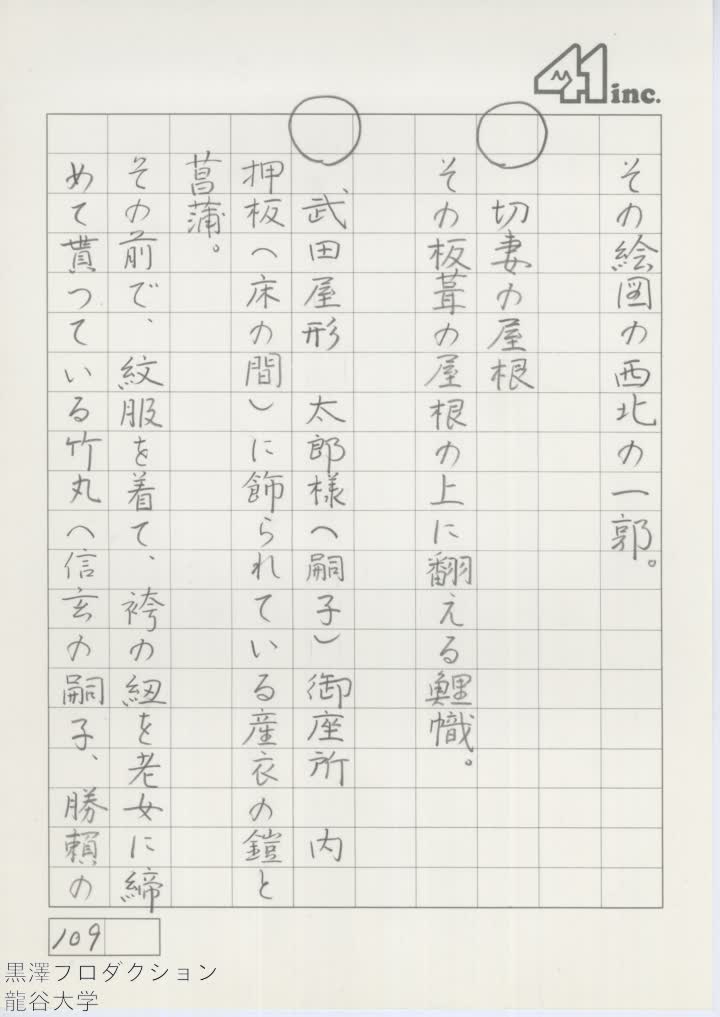 41 inc.
その絵図の西北の一郭。
○
切妻の屋根
その板葺の屋根の上に翻える鯉幟。
○
武田屋形　太郎様(嗣子)御座所　内
押板(床の間)に飾られている産衣の鎧と
菖蒲。
その前で、紋服を着て、袴の紐を老女に締
めて貰つている竹丸(信玄の嗣子、勝頼の
109
黒澤プロダクション
龍谷大学